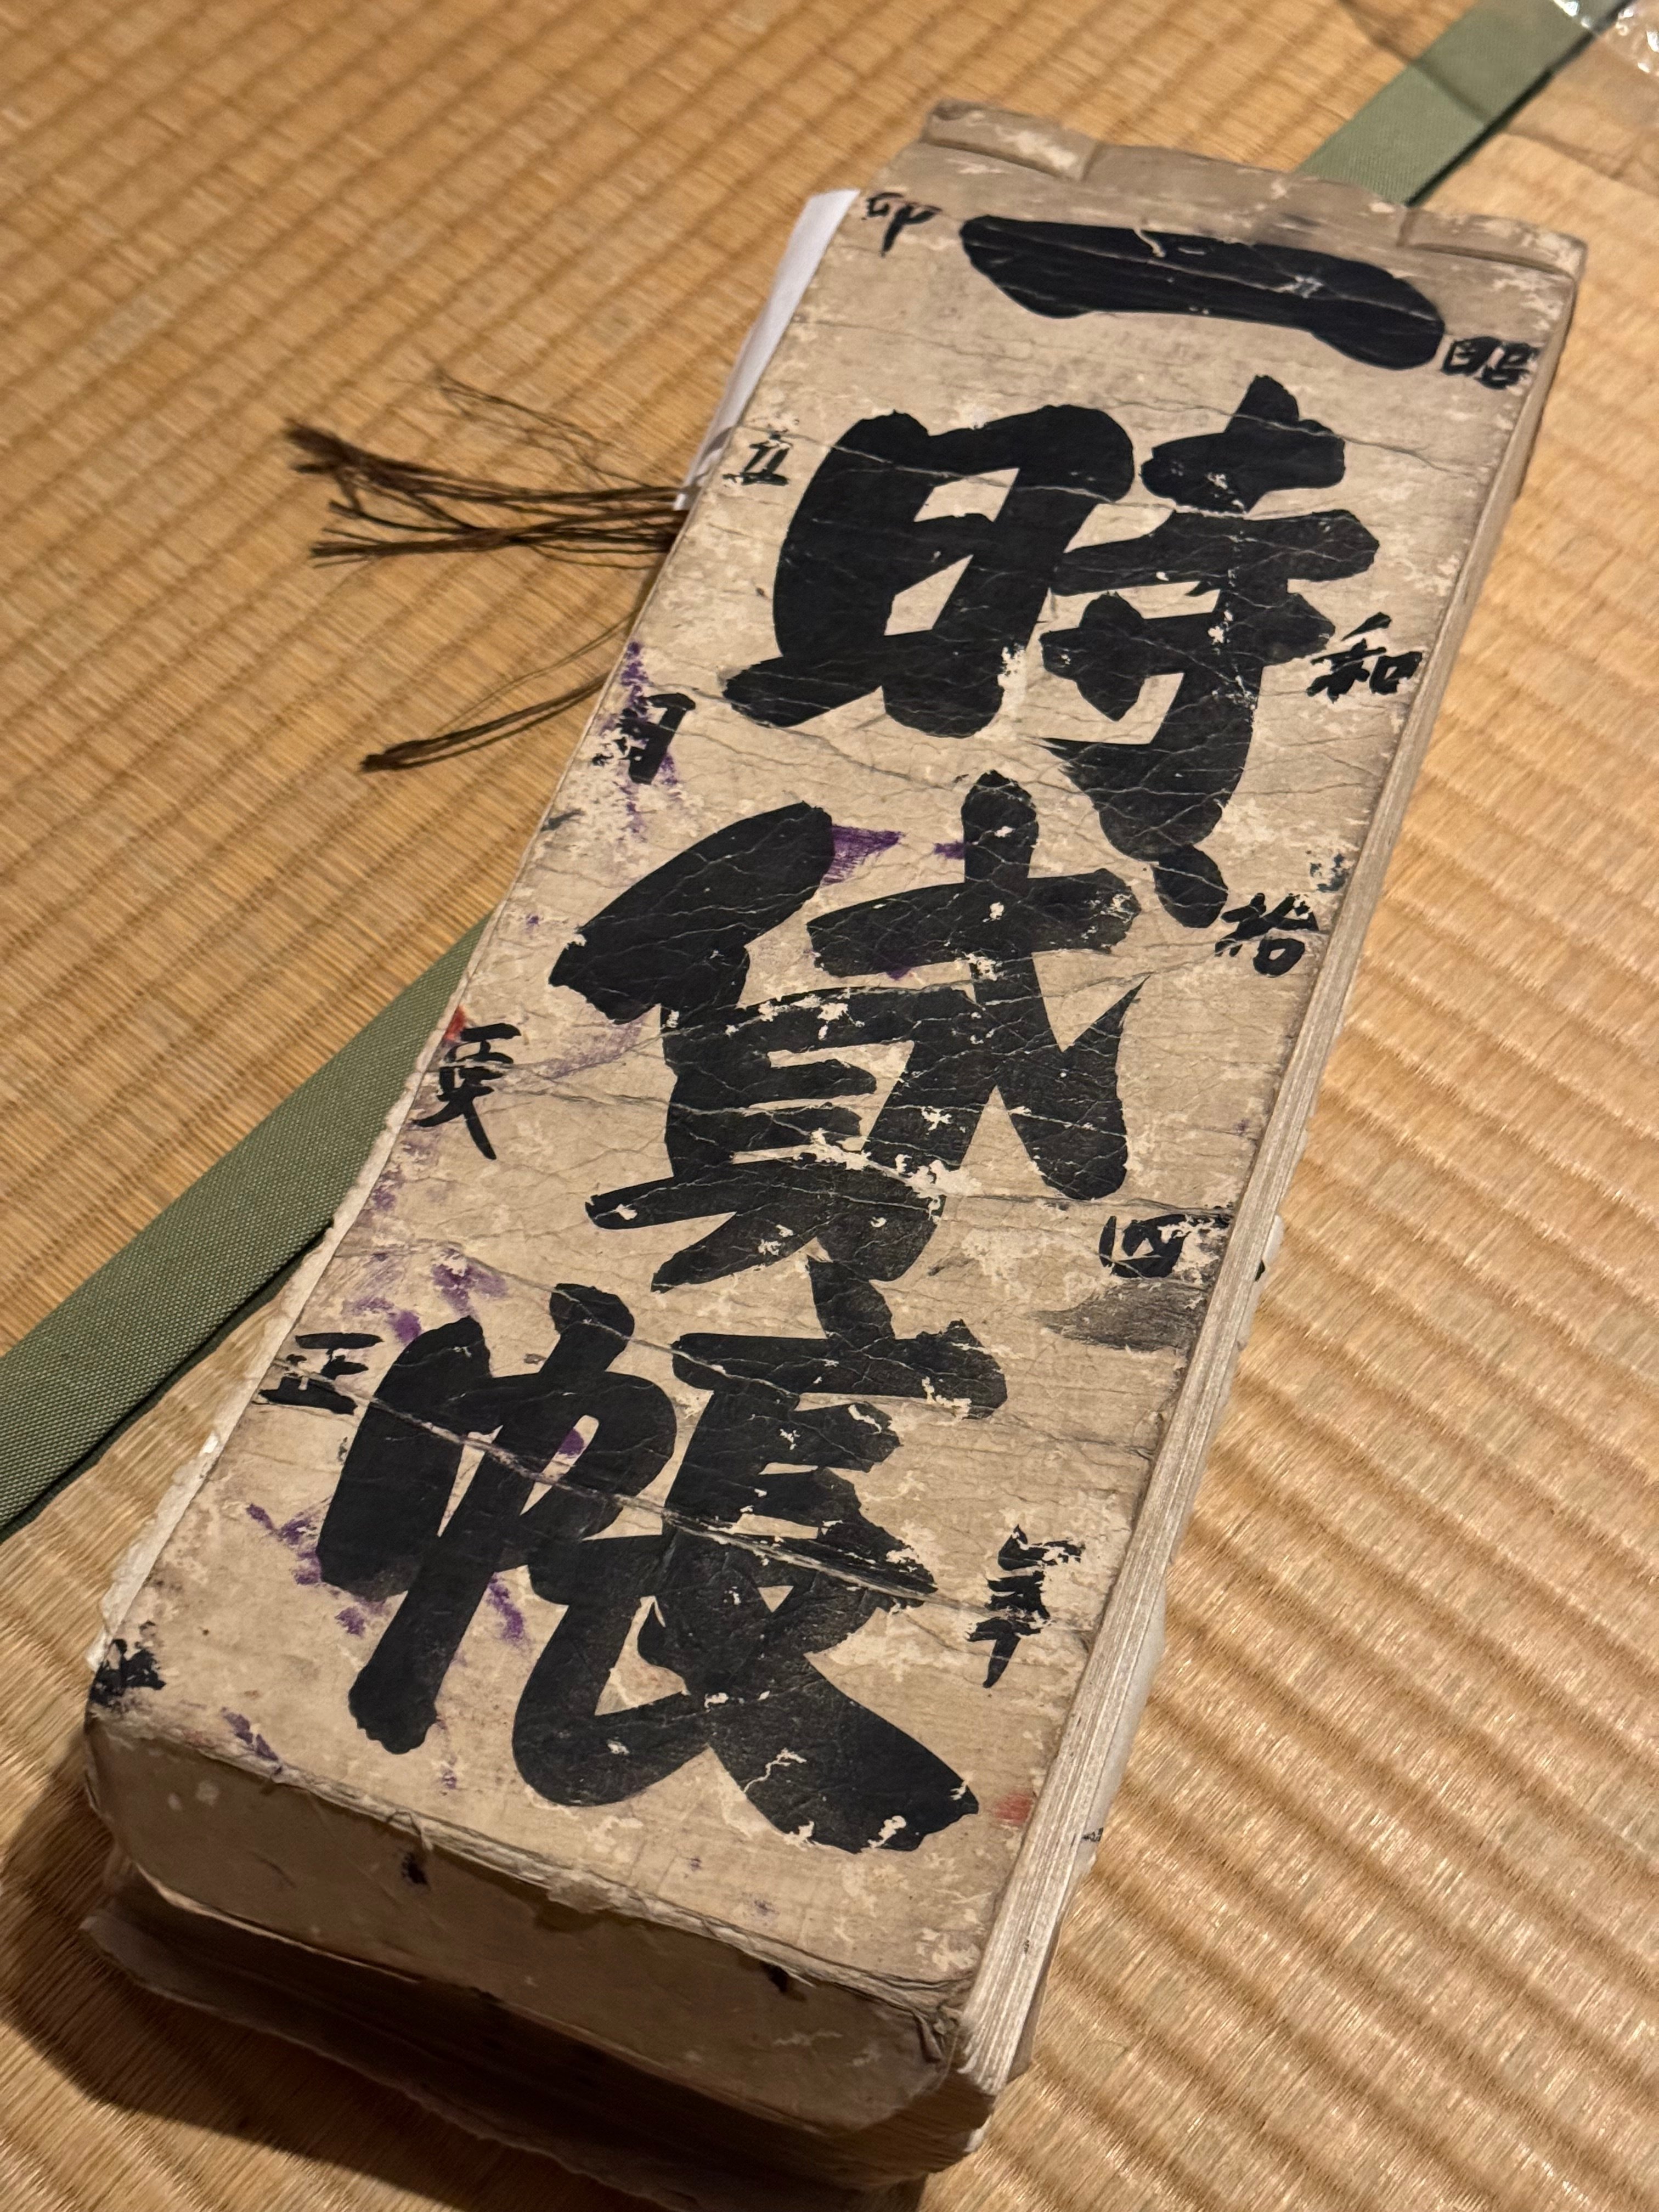 昭和拾四年
一時貸帳
卯五月更正